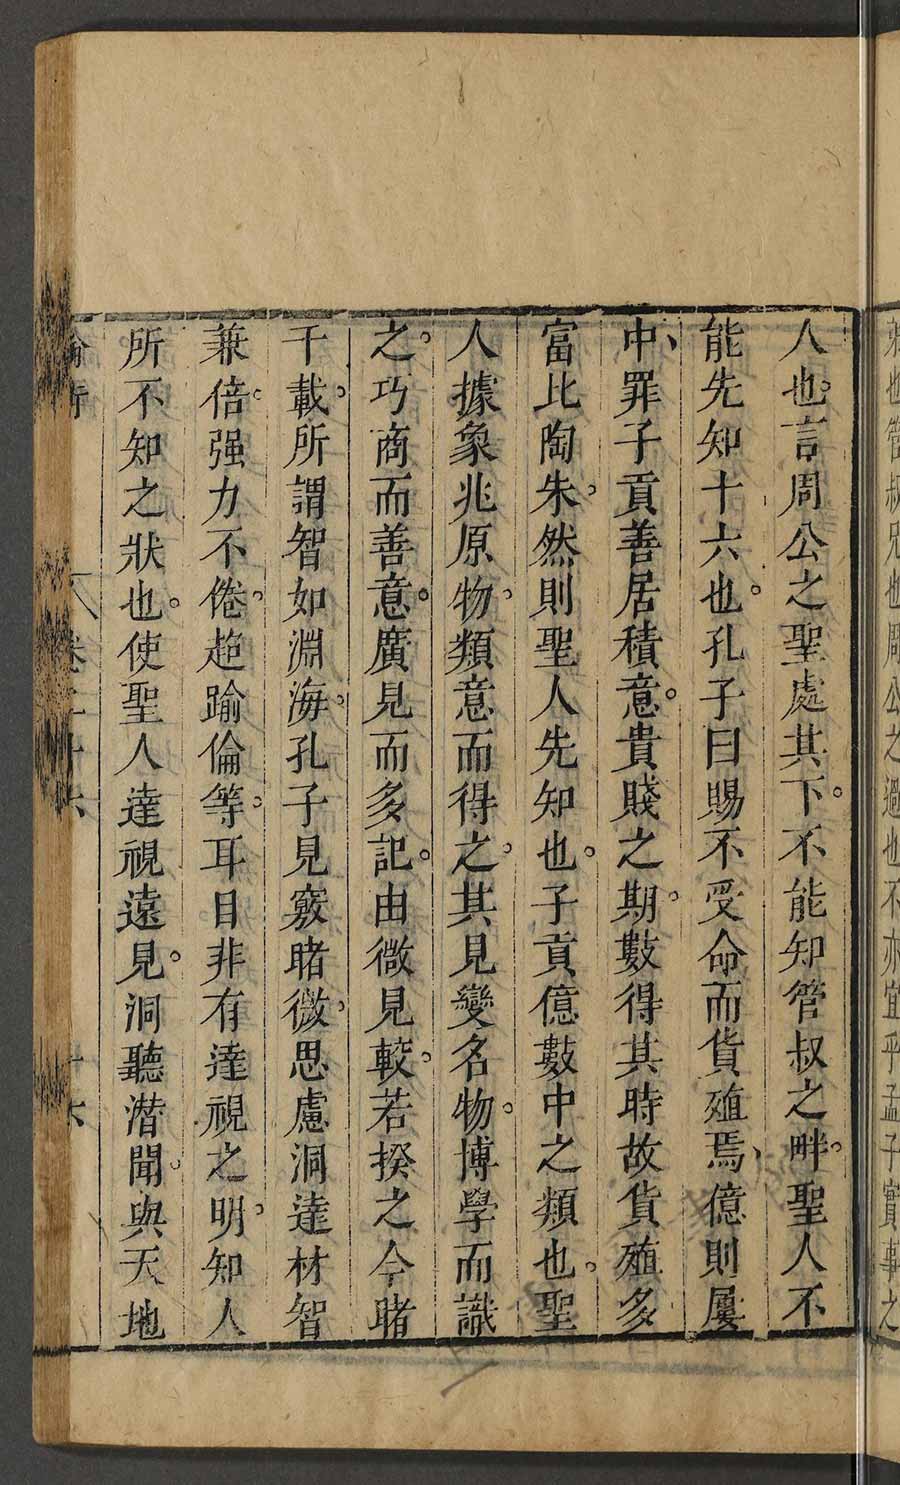 弟也管叔兄也周公之過也不亦宜乎孟子實事之
人也言周公之聖處其下不能知管叔之畔聖人不
能先知十六也孔子曰賜不受命而貨殖焉億則屢
中罪子貢善居積意貴賤之期數得其時故貨殖多
富比陶朱然則聖人先知也子貢億數中之類也聖
人據象兆原物類意而得之其見變名物博學而識
之巧商而善意廣見而多記由微見較若揆之今睹
千載所謂智如淵海孔子見竅睹微思慮洞達材智
兼倍强力不倦超踰倫等耳目非有達視之明知人
所不知之狀也使聖人達視遠見洞聽潛聞與天地
論衡 卷二十六 十六